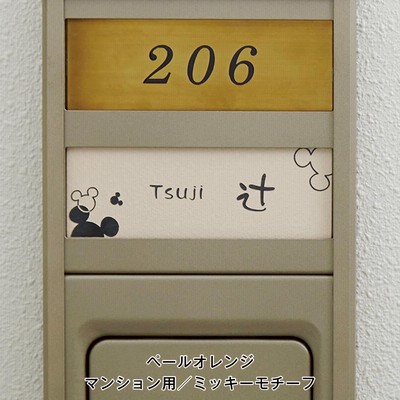 206
Tsuji 辻
ペールオレンジ
マンション用／ミッキーモチーフ